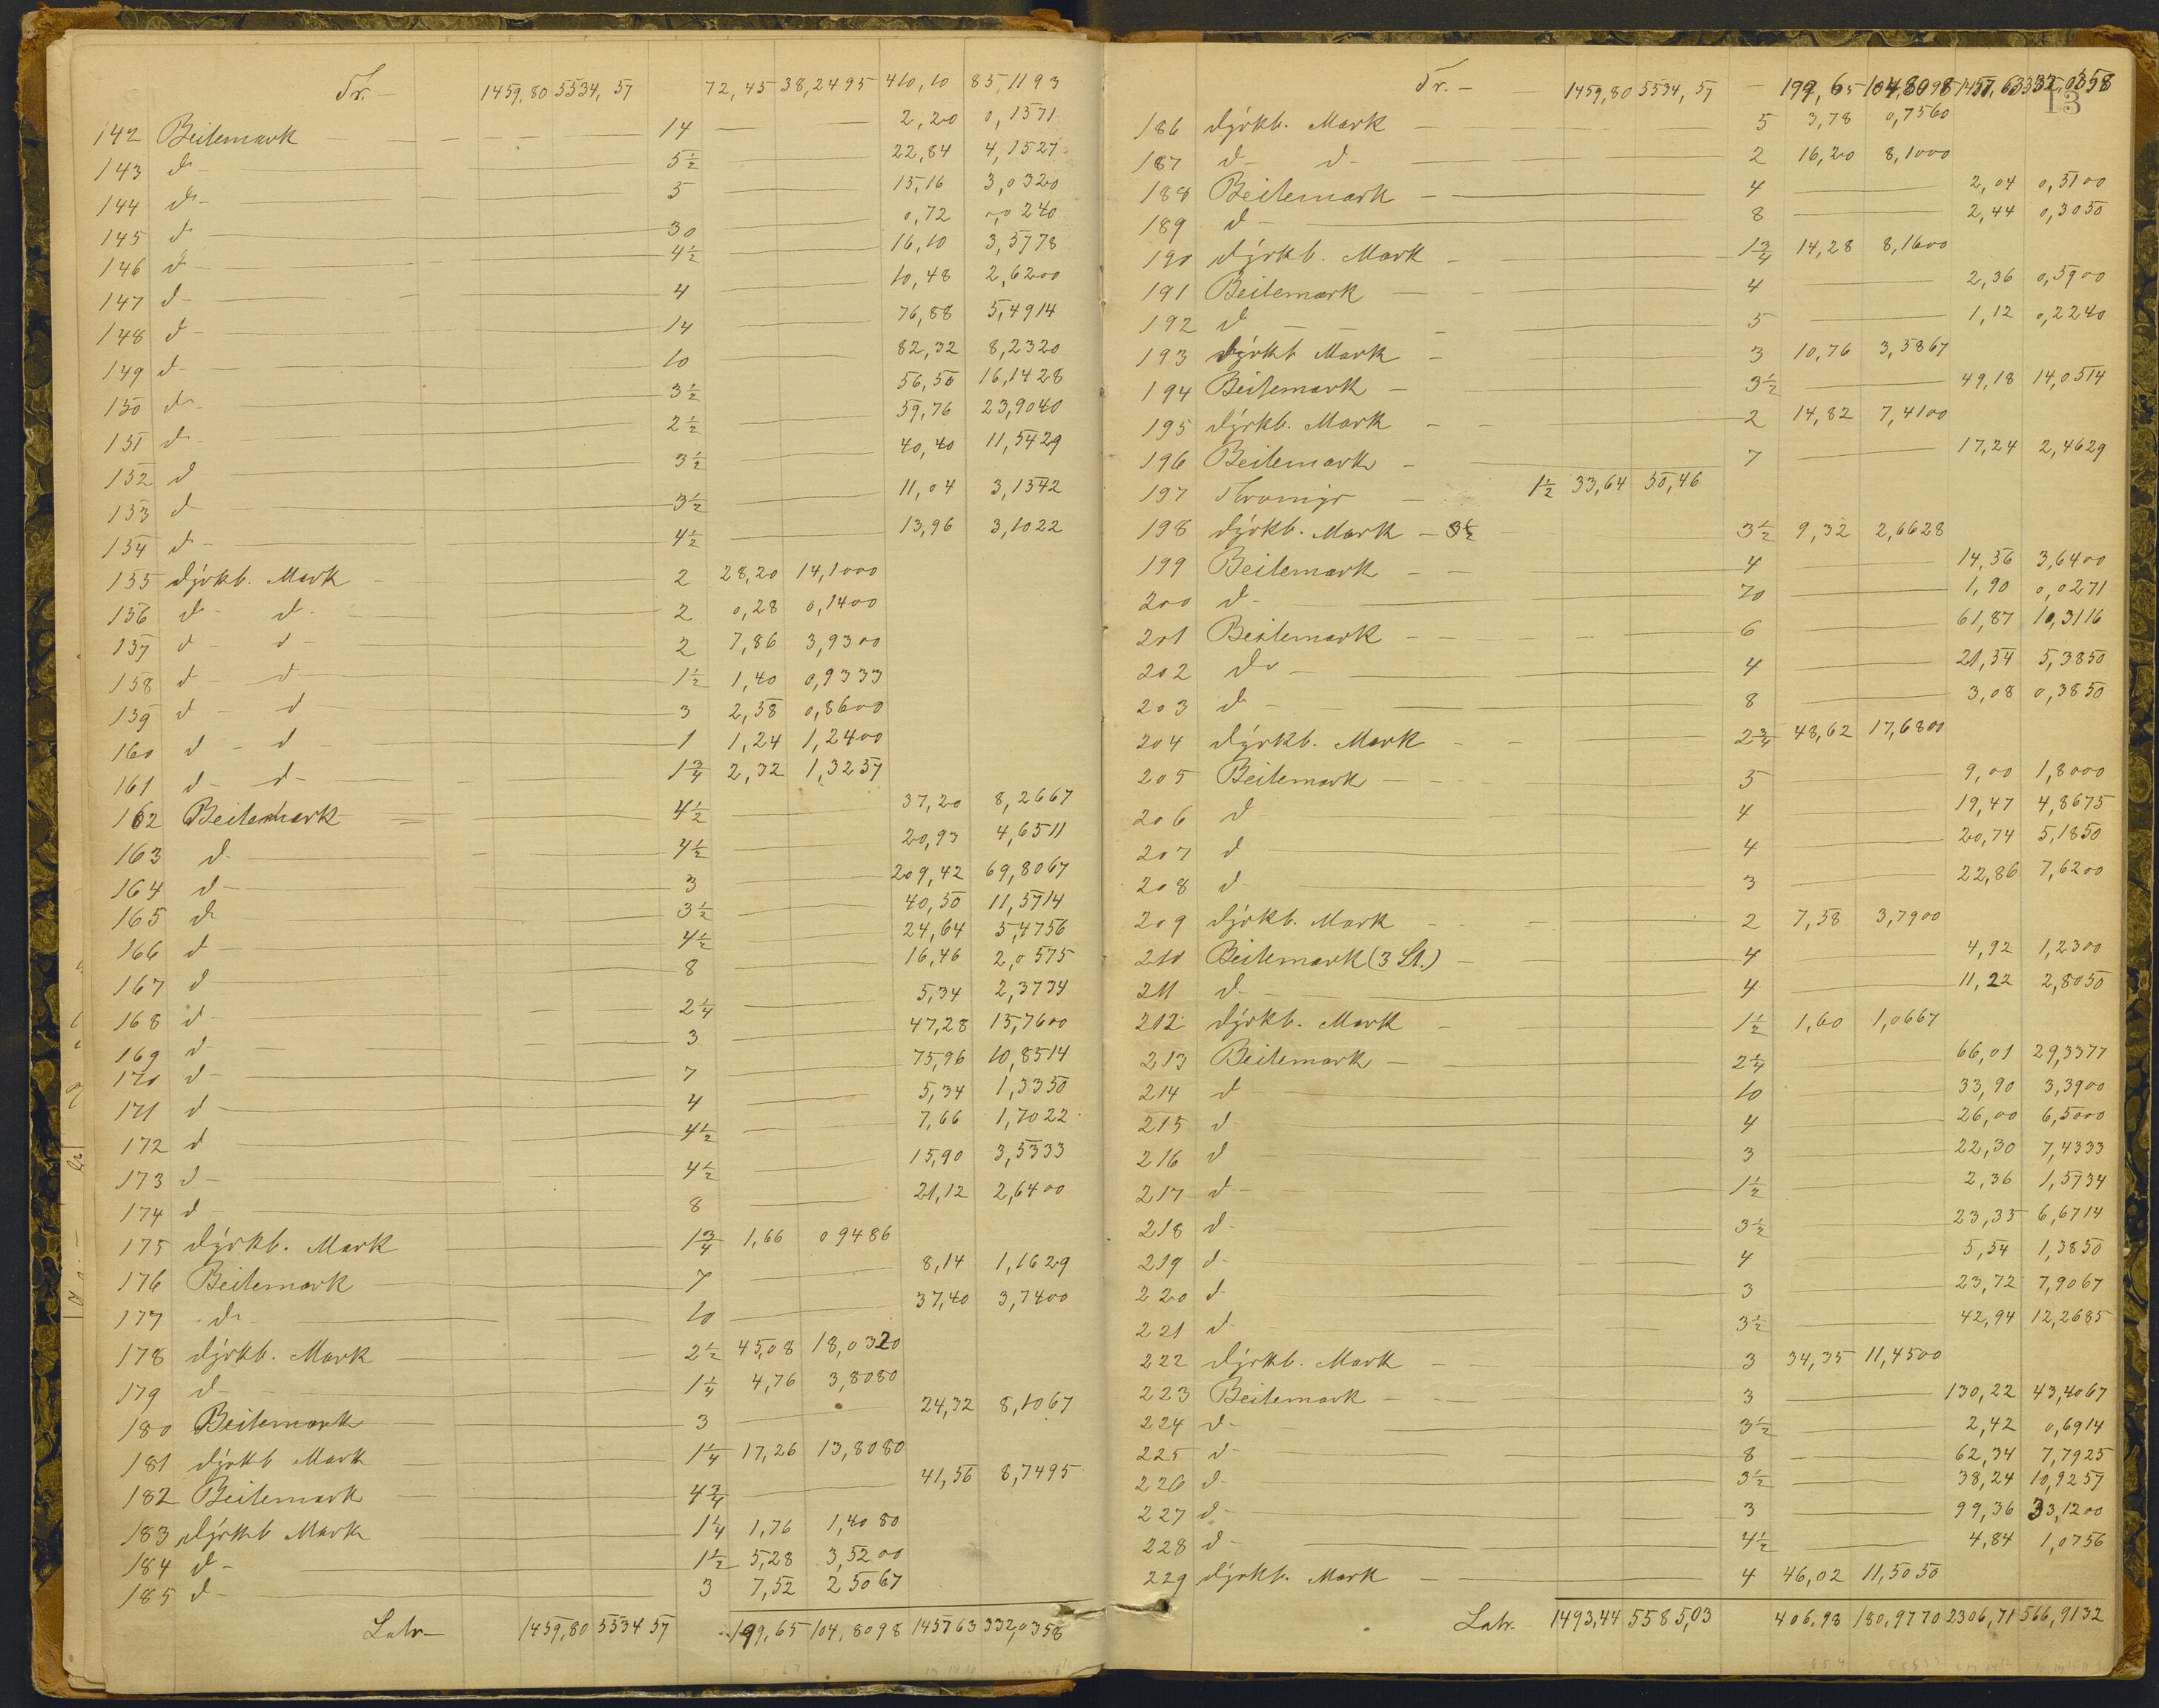 Tr. — 1459,80 5534,57 72,45 38,2495 410,10 85,1193
142 Beitemark 14 2,20 0,1571
143 d- 5½ 22,84 4,1527
144 d- 5 15,16 3,0320
145 d 30 0,72 0,0240
146 d- 4½ 16,10 3,5778
147 d- 4 10,48 2,6200
148 d- 14 76,88 5,4914
149 d- 10 82,32 8,2320
150 d- 3½ 56,50 16,1428
151 d- 2½ 59,76 23,9040
152 d 3½ 40,40 11,5429
153 d 3½ 11,04 3,1542
154 d- 4½ 13,96 3,1022
155 dÿrkb. Mark 2 28,20 14,1000
156 d- d- 2 0,28 0,1400
157 d- d- 2 7,86 3,9300
158 d- d- 1½ 1,40 0,9333
159 d- d 3 2,58 0,8600
160 d- d- 1 1,24 1,2400
161 d- d- 1¾ 2,32 1,3257
162 Beitemark 4½ 37,20 8,2667
163 d- 4½ 20,93 4,6511
164 d- 3 209,42 69,8067
165 d 3½ 40,50 11,5714
166 d 4½ 24,64 5,4756
167 d 8 16,46 2,0575
168 d- 2¼ 5,34 2,3734
169 d- 3 47,28 15,7600
170 d- 7 75,96 10,8514
171 d- 4 5,34 1,3350
172 d 4½ 7,66 1,7022
173 d- 4½ 15,90 3,5333
174 d- 8 21,12 2,6400
175 dÿrkb. Mark 1¾ 1,66 0 9486
176 Beitemark 7 8,14 1,1629
177 d- 10 37,40 3,7400
178 dÿrkb. Mark 2½ 45,08 18,0320
179 d- 1¼ 4,76 3,8080
180 Beitemark 3 24,32 8,1067
181 dÿrkb Mark 1¼ 17,26 13,8080
182 Beitemark 4¾ 41,56 8,7495
183 dÿrkb Mark 1¼ 1,76 1,4080
184 d- 1½ 5,28 3,5200
185 d- 3 7,52 2 5067
Latr- 1459,80 5534 57 199,65 104,8098 1457 63 332,0358
13
Tr. — 1459,80 5534,57 — 199,65 104,8098 1457,63 332,0358
186 dÿrkb. Mark 5 3,78 0,7560
187 d- d- 2 16,20 8,1000
188 Beitemark 4 2,04 0,5100
189 d- 8 2,44 0,3050
190 dÿrkb. Mark 1¾ 14,28 8,1600
191 Beitemark 4 2,36 0,5900
192 d 5 1,12 0,2240
193 dÿrkb Mark 3 10,76 3,5867
194 Beitemark 3½ 49,18 14,0514
195 dÿrkb. Mark 2 14,82 7,4100
196 Beitemark 7 17,24 2,4629
197 1½ 33,64 50,46
198 dÿrkb. Mark - 3½ 3½ 9,32 2,6628
199 Beitemark 4 14,56 3,6400
200 d- 70 1,90 0,0271
201 Beitemark 6 61,87 10,3116
202 do 4 21,54 5,3850
203 d- 8 3,08 0,3850
204 dÿrkb. Mark 2¾ 48,62 17,6800
205 Beitemark 5 9,00 1,8000
206 d 4 19,47 4,8675
207 d 4 20,74 5,1850
208 d- 3 22,86 7,6200
209 dÿrkb. Mark 2 7,58 3,7900
210 Beitemark (3 St.) 4 4,92 1,2300
211 d- 4 11,22 2,8050
212 dÿrkb. Mark 1½ 1,60 1,0667
213 Beitemark 2¼ 66,01 29,3377
214 d 10 33,90 3,3900
215 d 4 26,00 6,5000
216 d 3 22,30 7,4333
217 d- 1½ 2,36 1,5734
218 d- 3½ 23,35 6,6714
219 d- 4 5,54 1,3850
220 d- 3 23,72 7,9067
221 d- 3½ 42,94 12,2685
222 dÿrkb. Mark 3 34,35 11,4500
223 Beitemark 3 130,22 43,4067
224 d- 3½ 2,42 0,6914
225 d- 8 62,34 7,7925
226 d- 3½ 38,24 10,9257
227 d- 3 99,36 33,1200
228 d- 4½ 4,84 1,0756
229 dÿrkb. Mark 4 46,02 11,5050
Latr. 1493,44 5585,03 406,98 180,9770 2306,71 566,9132